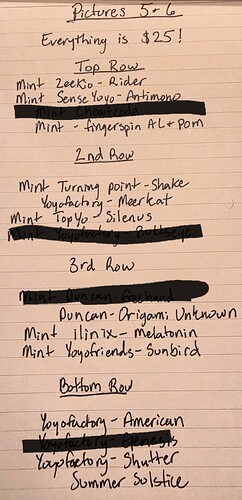 Pictures 5+6
Everything is $25!
Top Row
Mint Zeekio - Rider
Mint SenseYoyo - Antimono
Mint
Mint - fingerspin AL + Pom
2nd Row
Mint Turning point - Shake
Yoyofactory - Meerkat
Mint TopYo - Silenus
Mint Yoyofactory
3rd Row
Mint Duncan - freehand
Duncan - Origami Unknown
Mint ilinix - melatonin
Mint Yoyofriends - Sunbird
Bottom Row
Yoyofactory - American
Yoyofactory - Genesis
Yoyofactory - Shutter
Summer Solstice